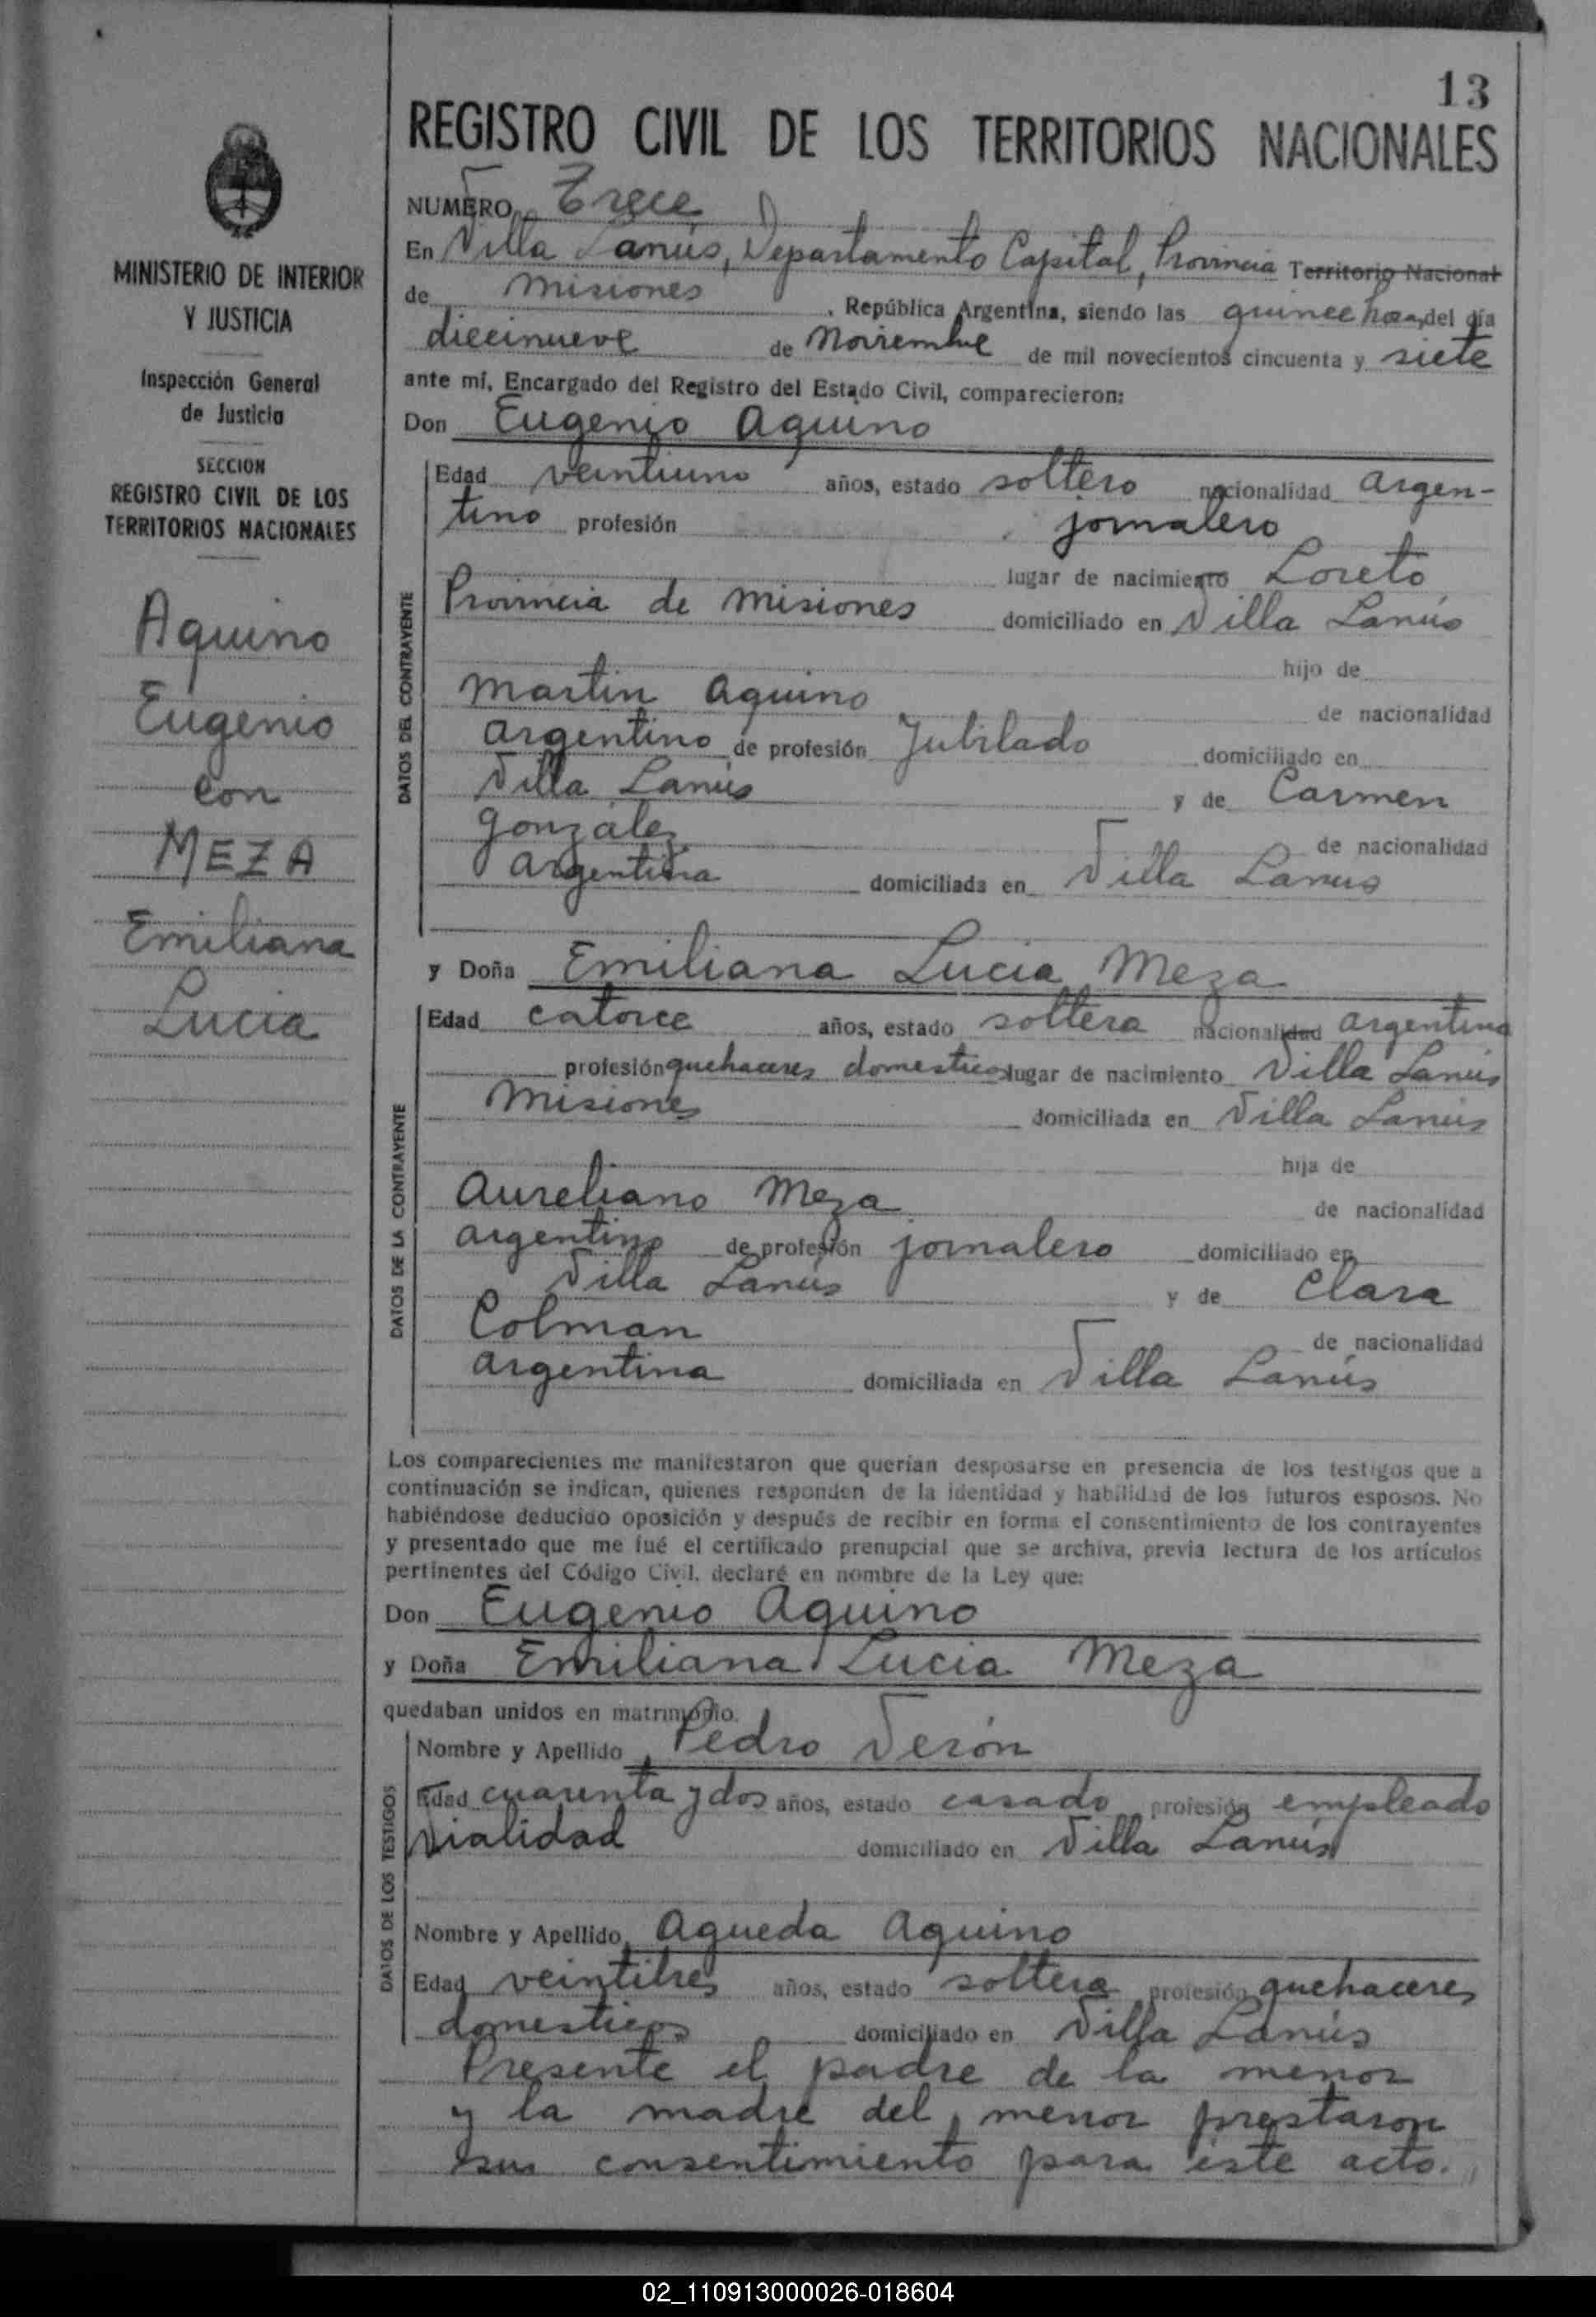 13
REGISTRO CIVIL DE LOS TERRITORIOS NACIONALES
MINISTERIO DE INTERIOR
Y JUSTICIA
Inspección General
de Justicia
SECCION
REGISTRO CIVIL DE LOS
TERRITORIOS NACIONALES
Aquino
Eugenio
con
MEZA
Emiliana
Lucia
NUMERO Trece
En Villa Lanús, Departamento Capital, Provincia Territorio Nacional
de Misiones, República Argentina, siendo las quince horas del día
diecinueve de Noviembre de mil novecientos cincuenta y siete
ante mí, Encargado del Registro del Estado Civil, comparecieron:
Don Eugenio Aquino
DATOS DEL CONTRAYENTE
Edad veintiuno años, estado soltero nacionalidad argen-
tino profesión jornalero
lugar de nacimiento Loreto
Provincia de Misiones domiciliado en Villa Lanús
hijo de
Martin Aquino de nacionalidad
argentino de profesión Jubilado domiciliado en
Villa Lanús y de Carmen
González de nacionalidad
argentina domiciliada en Villa Lanus
y Doña Emiliana Lucia Meza
DATOS DE LA CONTRAYENTE
Edad catorce años, estado soltera nacionalidad argentina
profesión quehaceres domesticos lugar de nacimiento Villa Lanús
Misiones domiciliada en Villa Lanús
hija de
Aureliano Meza de nacionalidad
argentino de profesión jornalero domiciliado en
Villa Lanús y de Clara
Colman de nacionalidad
argentina domiciliada en Villa Lanús
Los comparecientes me manifestaron que querían desposarse en presencia de los testigos que a
continuación se indican, quienes responden de la identidad y habilidad de los futuros esposos. No
habiéndose deducido oposición y después de recibir en forma el consentimiento de los contrayentes
y presentado que me fué el certificado prenupcial que se archiva, previa lectura de los artículos
pertinentes del Código Civil, declaré en nombre de la Ley que:
Don Eugenio Aquino
y Doña Emiliana Lucia Meza
quedaban unidos en matrimonio.
DATOS DE LOS TESTIGOS
Nombre y Apellido Pedro Verón
Edad cuarenta y dos años, estado casado profesión empleado
Vialidad domiciliado en Villa Lanús
Nombre y Apellido Agueda Aquino
Edad veintitres años, estado soltera profesión quehaceres
domesticos domiciliado en Villa Lanús
Presente el padre de la menor
y la madre del menor prestaron
sus consentimiento para éste acto.
02_110913000026-018604